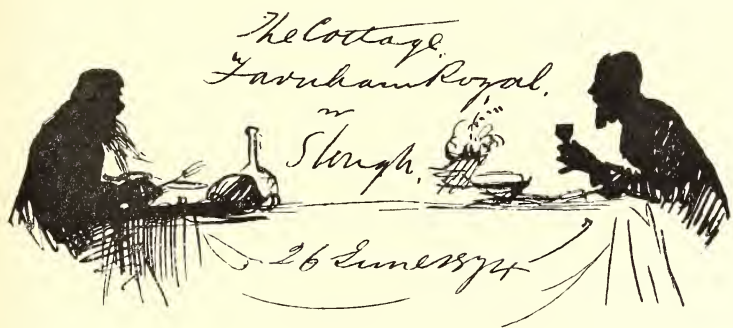 The Cottage.
Farnham Royal.
nr
Slough.
26 June 1874